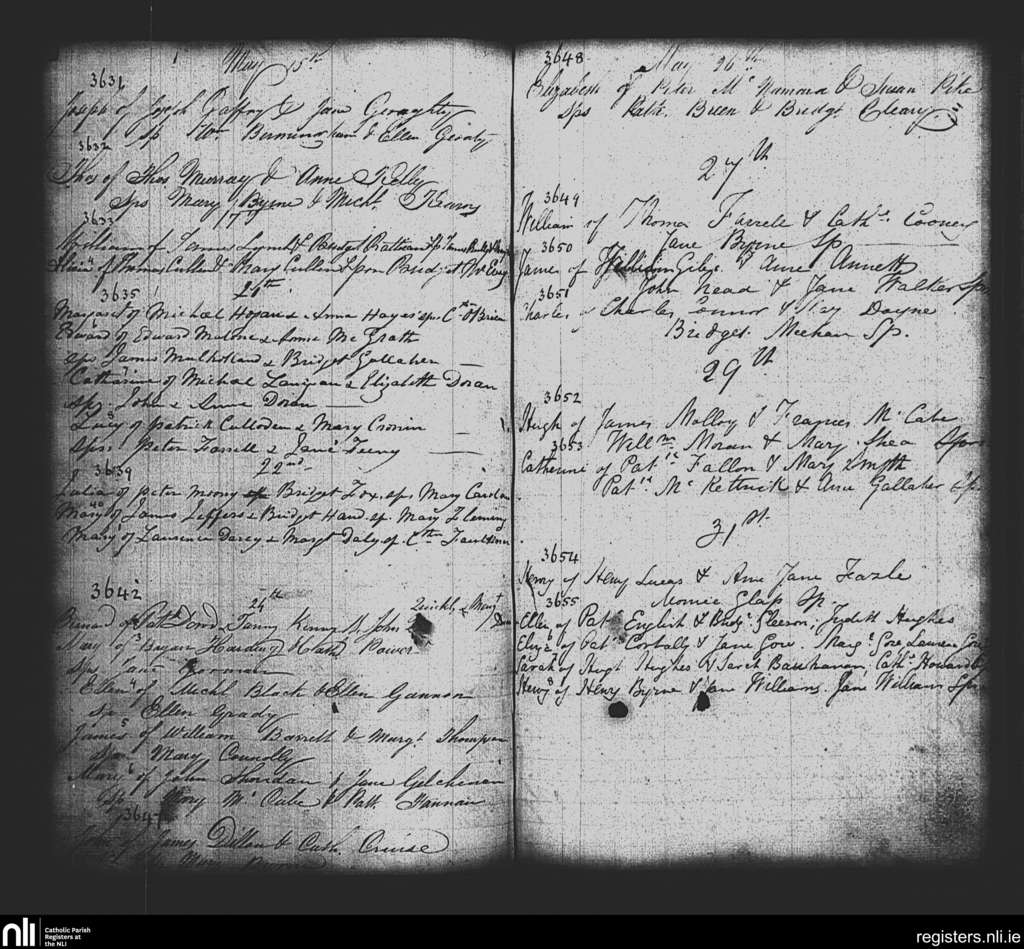 May 15th
3631
Joseph of Joseph Gaffny & Jane Geraghty
Sp Wm Bermingham & Ellen Geraty
3632
Thos of Thos Murray & Anne Kelly
Sps Mary Byrne & Michl. Kearns
3633 17th
William of James Lynch & Bridget
of Thomas Cullen & Mary Cullen Spon Bridget
3635 20th
Margaret of Michael Hogan & Anna Hayes sps Cth O'Brien
Edward of Edward Malone & Annie Mc Grath
sps James Mulholland & Bridget Gallaher
Catharine of Michael Lanigan & Elizabeth Doran
sps John & Anne Doran
Lucy of Patrick Culloden & Mary Cronin
Sps. Peter Farrell & Jane Feeny
3639 22nd
Julia of Peter Moony Bridget Fox sps Mary
Mary of James Jeffers & Bridget Hand sp. Mary Fleming
Mary of Laurence Darcy & Margt Daly sp. Cthn
3642 24th
of Patk Dowd & Fanny Kenny Sp. John & Mary
Mary of Bryan Harding & Cath Power
Sps Gorman
Ellen of Michl Black & Ellen Gannon
Sp Ellen Grady
James of William Barrett & Margt. Thompson
Spn Mary Connolly
Mary of John Sheridan & Jane
Sps Mc Cabe & Patk Hannan
3647
John of James Dillon & Cath. Cruise
3648 May 26th
Elizabeth of Peter McNamara & Susan Pike
Sps Patk. Breen & Bridgt. Cleary
27th
3649
William of Thomas Farrell & Cathn. Cooney
3650 Jane Byrne Sp
Jane of William Giles & Anne Annett
3651 John Nead & Jane Walker Sps
Charles of Charles Connor & May Doyne
Bridget Meehan Sp.
29th
3652
Hugh of James Molloy & Frances McCabe
3653 Willm. Moran & Mary Shea Spns
Catherine of Patk Fallon & Mary Smyth
Patk. Mc Kettrick & Anne Gallaher Sps
31st
3654
Henry of Henry Lucas & Ann Jane
3655 Glass Sp.
Ellen of Patk English & Bridgt Gleeson, Judith Hughes
Eliza of Patk. Corbally & Jane Gore. Margt Gore
Sarah of Hugh Hughes & Sarah Bauhanan. Cath. Howard Sp
Henry of Henry Byrne & Jane Williams. Jane Williams Sps
nli
Catholic Parish
Registers at
the NLI
registers.nli.ie